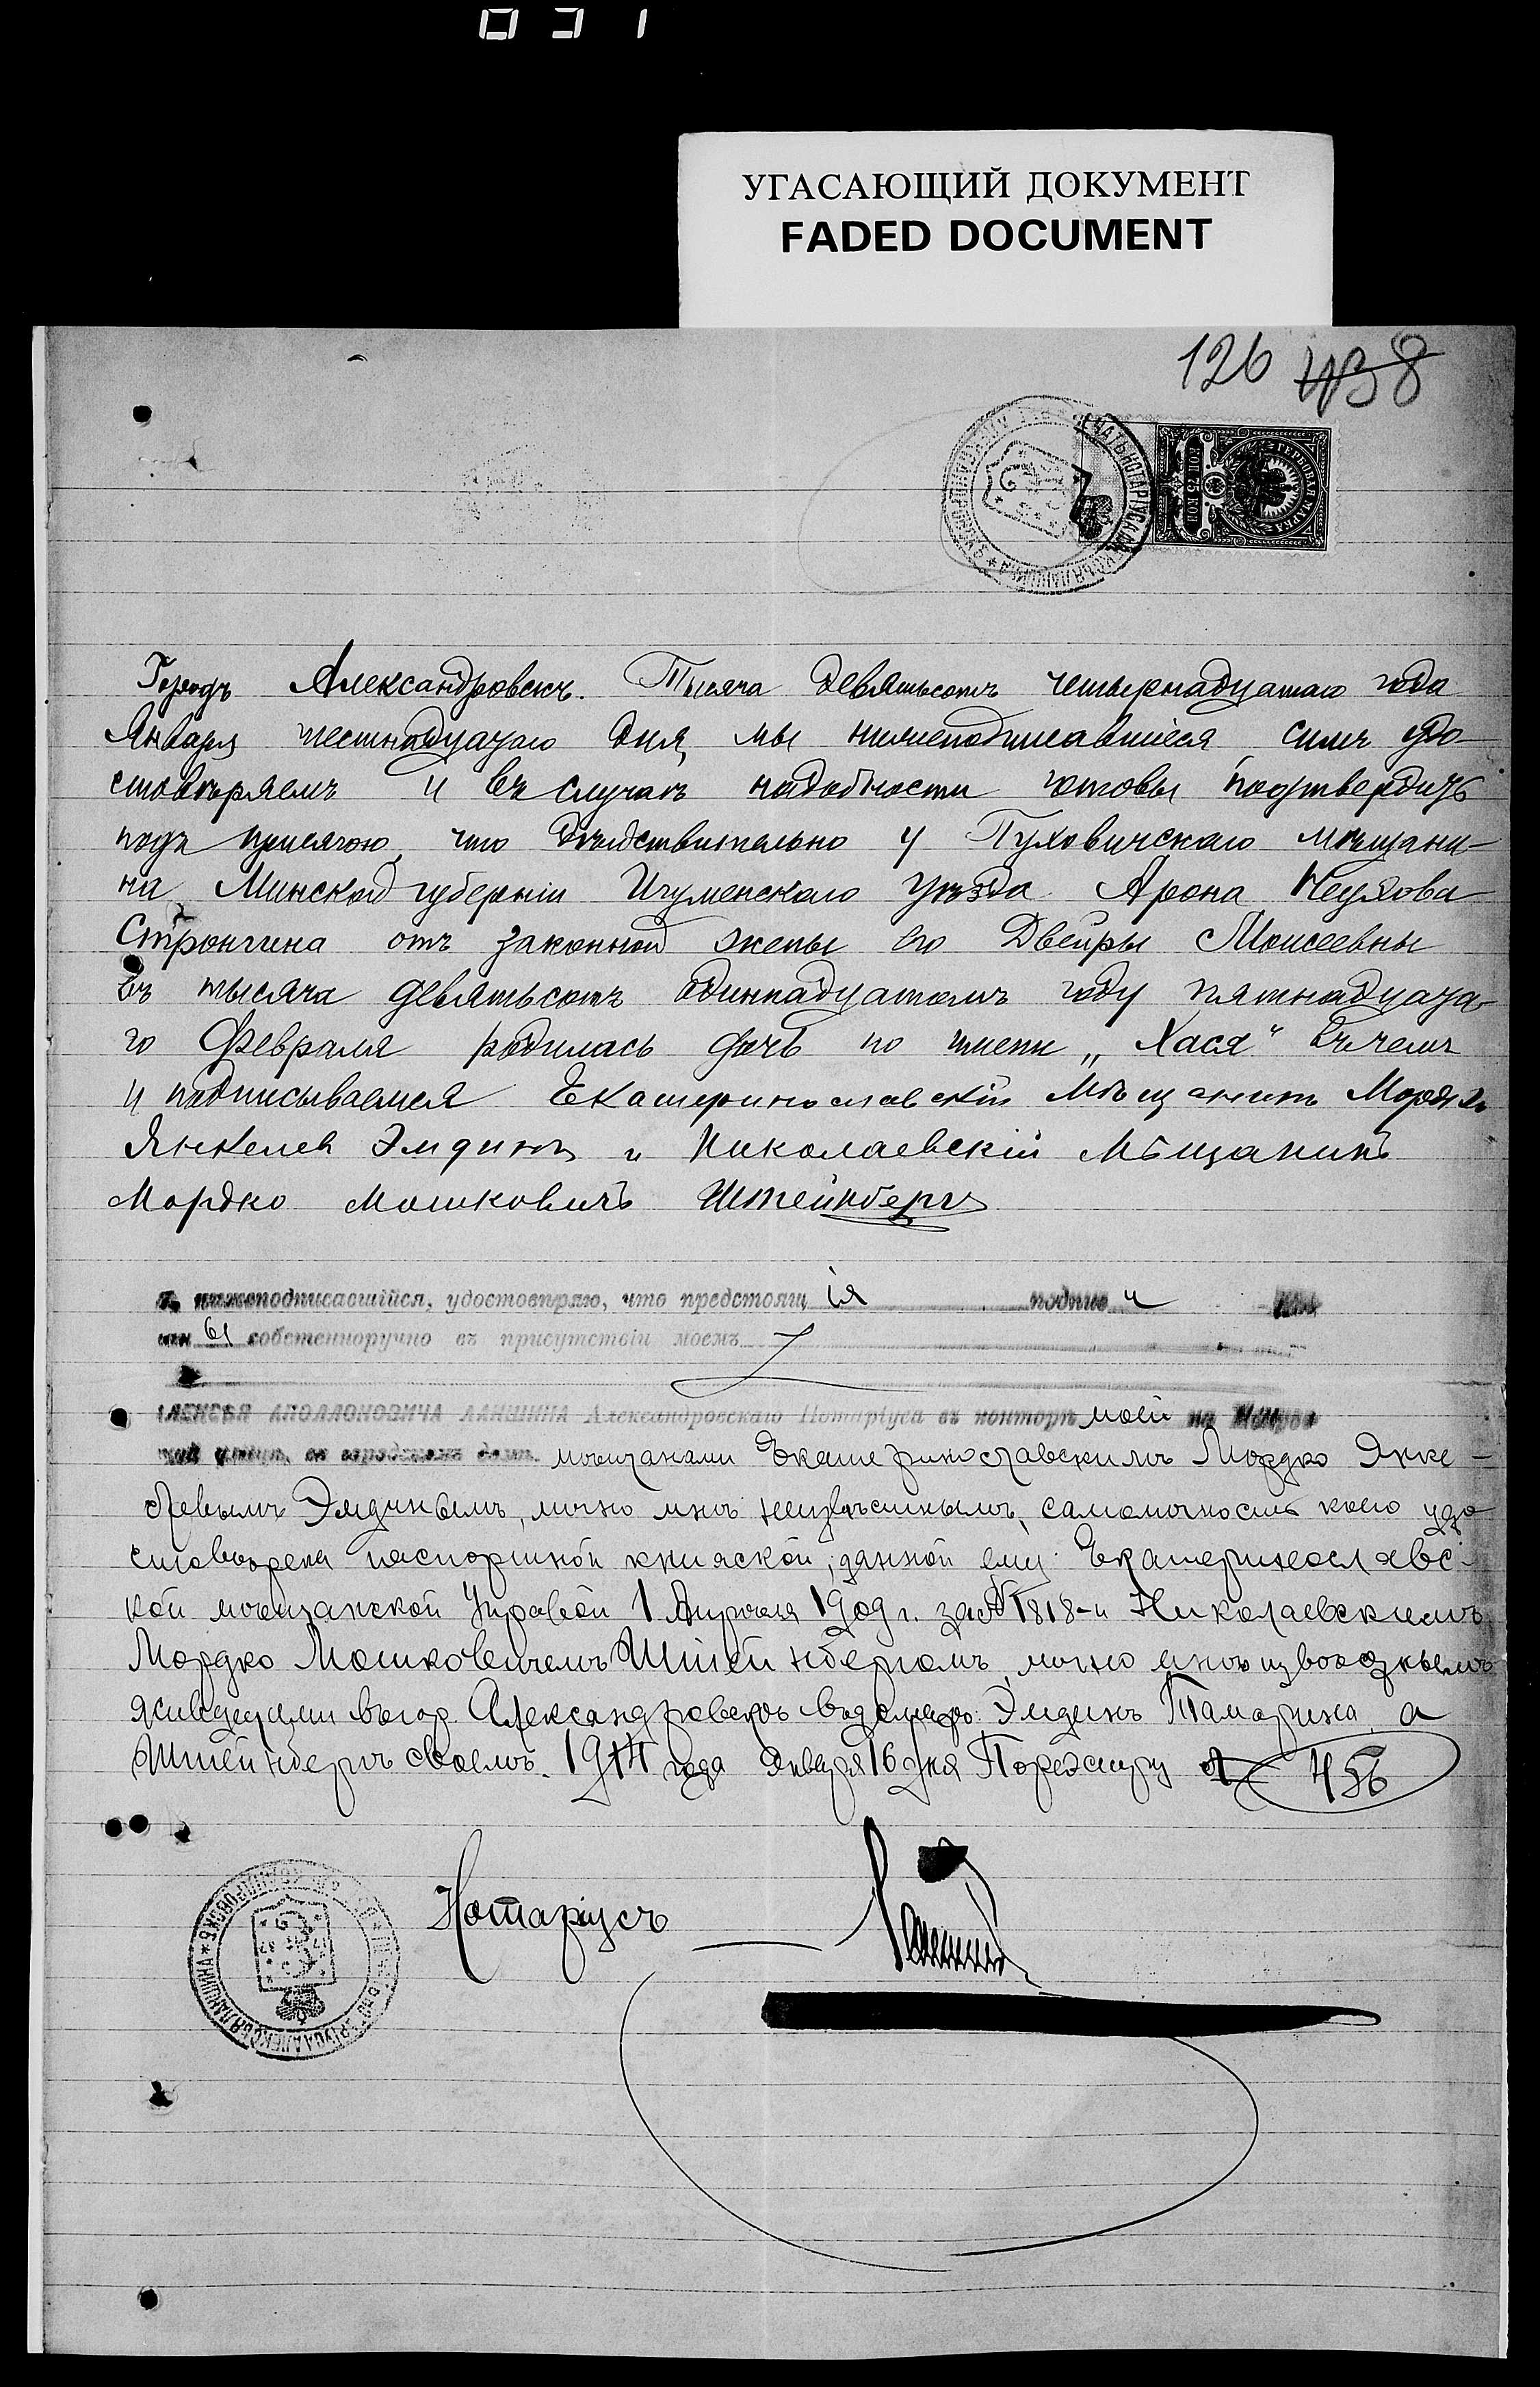 031
УГАСАЮЩИЙ ДОКУМЕНТ
FADED DOCUMENT
126 438
ГЕРБОВАЯ МАРКА
75 КОП
Городъ Александровскъ. Тысяча девятьсотъ четырнадцатаго года
Января шестнадцатаго дня, мы нижеподписавшіеся симъ удо-
стовѣряемъ и въ случаѣ надобности готовы подтвердить
подъ присягою, что дѣйствительно у Пуховичскаго мѣщани-
на Минской губерніи Игуменскаго уѣзда Арона
Стронгина отъ законной жены его Двейры Моисеевны
въ тысяча девятьсотъ одиннадцатомъ году пятнадцата-
го Февраля родилась дочь по имени „Хася" въ чемъ
и подписываемся Екатеринославскій Мѣщанинъ Мордко
Янкелев Элдинъ и Николаевскій Мѣщанинъ
Мордко Мошковичъ Штейнбергъ
Я, нижеподписавшійся, удостовѣряю, что предстоящія подписи
ны собственноручно въ присутствіи моемъ
АЛЕКСѢЯ АПОЛЛОНОВИЧА ЛАНШИНА Александровскаго Нотаріуса въ конторѣ моей на
мѣщанами Екатеринославскимъ Мордко Янке-
левымъ Элдинымъ, лично мнѣ неизвѣстнымъ, самоличность коего удо
стовѣрена паспортной книжкой, данной ему Екатеринославс-
кой мѣщанской Управой 1 Апрѣля 1909 г. за № 1818 - и Николаевскимъ
Мордко Мошковичемъ Штейнбергомъ, лично
живущими въ гор. Александровскѣ въ домахъ: Элдинъ Тамарина, а
Штейнбергъ своемъ. 1914 года Января 16 дня По реэстру № 456
Нотаріусъ Ланшинъ